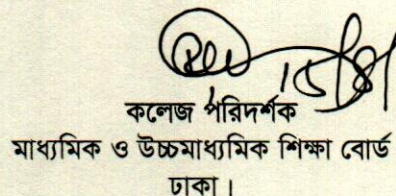 কলেজ পরিদর্শক
মাধ্যমিক ও উচ্চমাধ্যমিক শিক্ষা বোর্ড
ঢাকা।